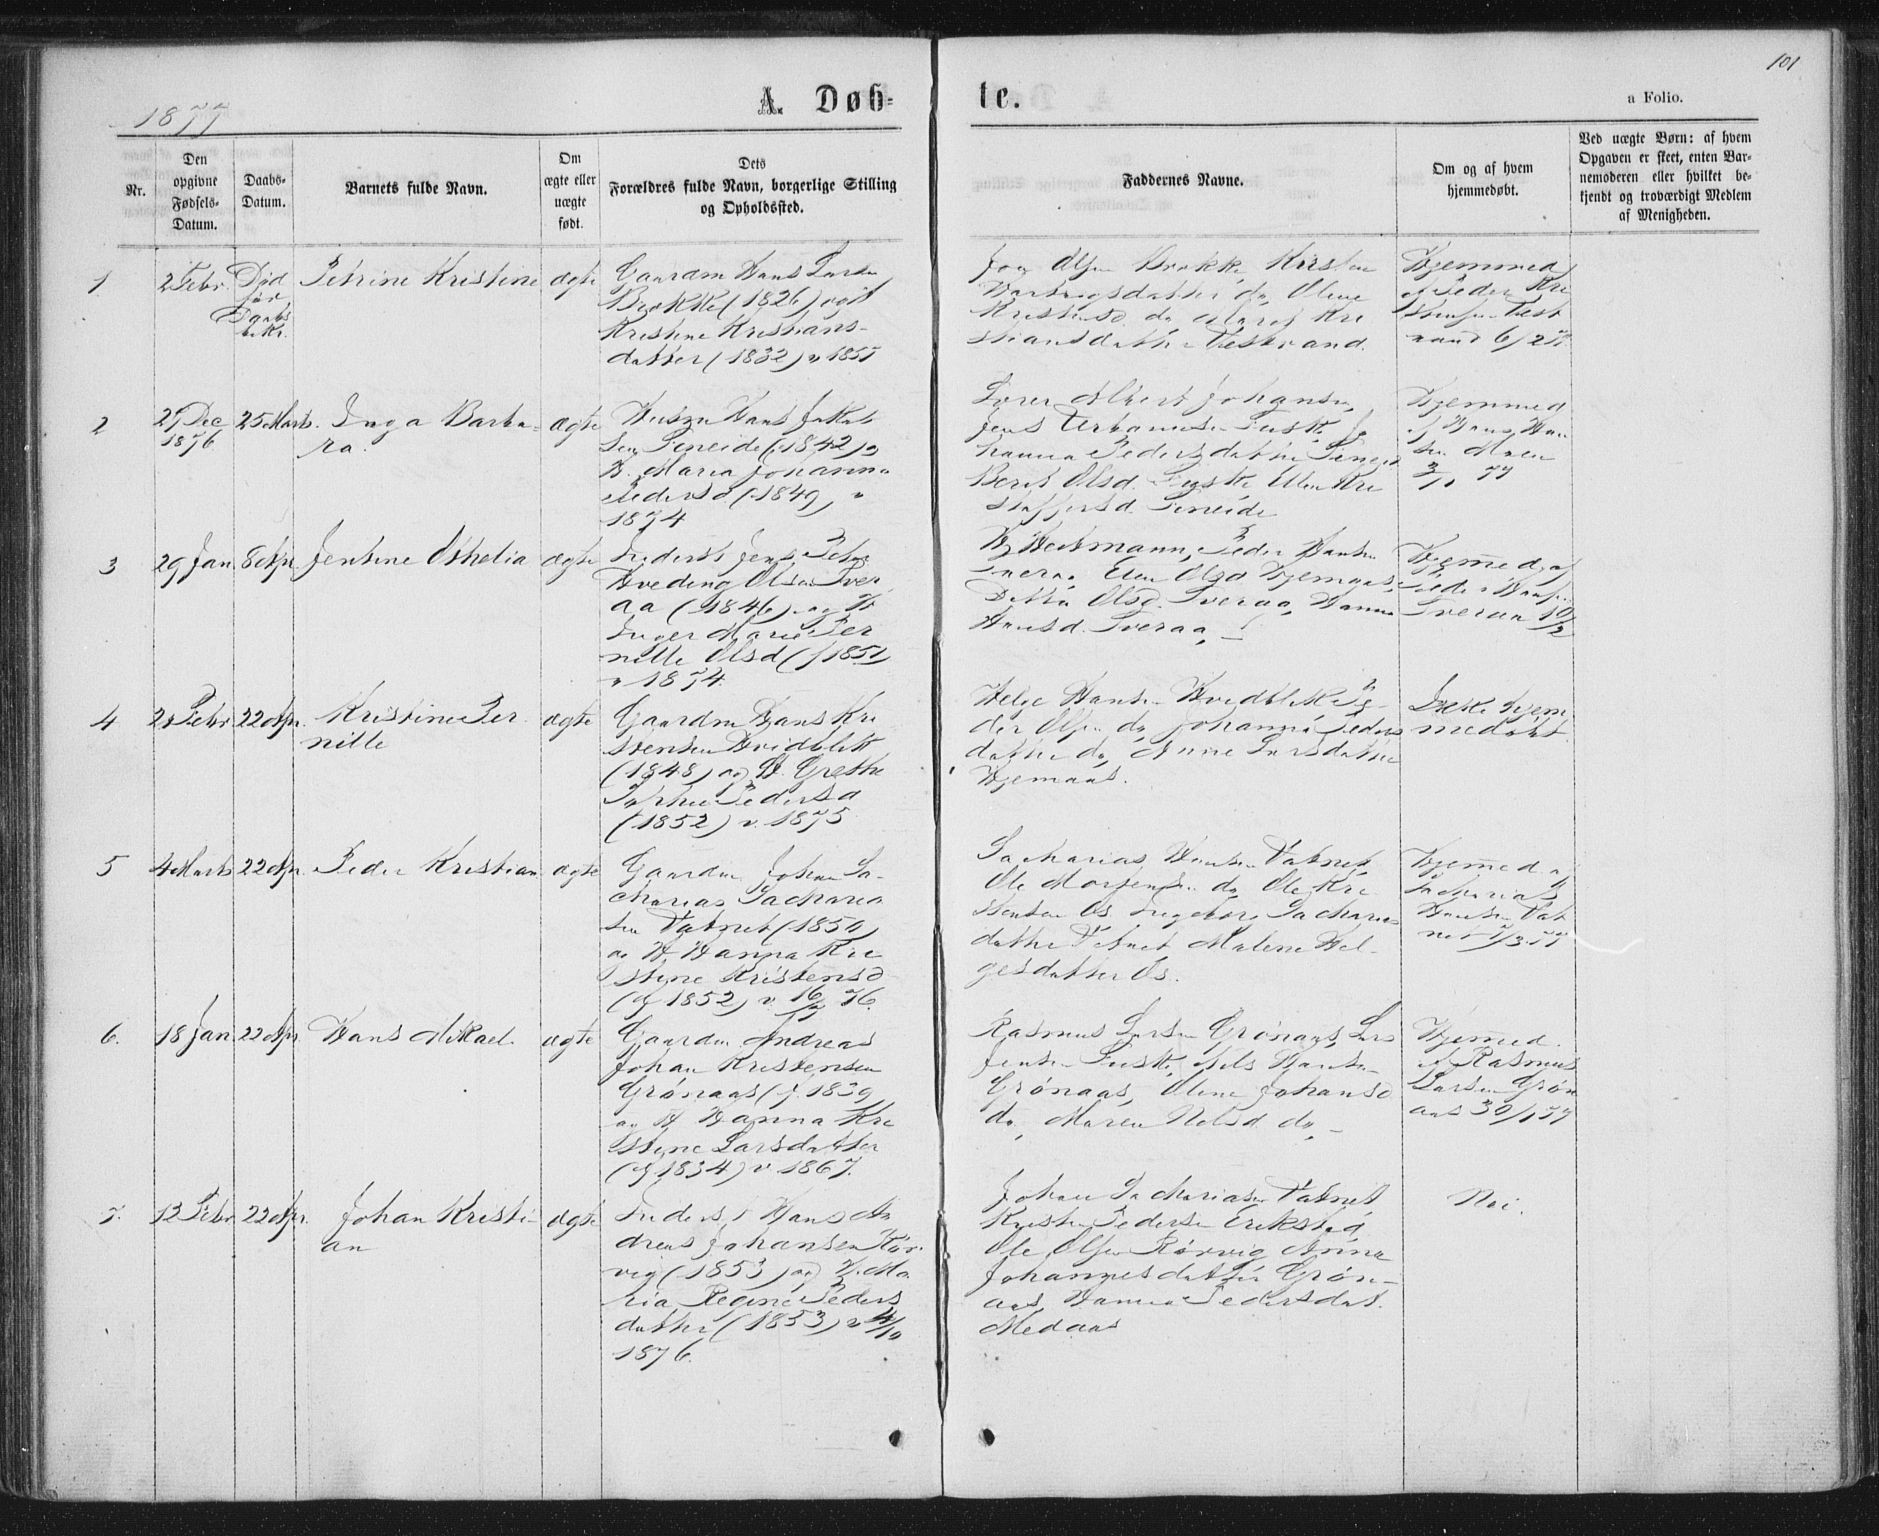 101
1877
A. Døb-
te.
a Folio.
Nr.
Den
opgivne
Fødsels-
Datum.
Daabs-
Datum.
Barnets fulde Navn.
Om
ægte eller
uægte
født.
Dets
Forældres fulde Navn, borgerlige Stilling
og Opholdssted.
Faddernes Navne.
Om og af hvem
hjemmedøbt.
Ved uægte Børn: af hvem
Opgaven er skeet, enten Bar-
nemoderen eller hvilket be-
kjendt og troværdigt Medlem
af Menigheden.
1
2 Febr
Død
før
Daabs
bekr.
Petrine Kristine
ægte
Gaardm Hans Larsen
(1826) og H
Kristine Kristians-
datter (1832) v 1855
Olsen Kristen
do Olene
Kristensd. do Kri
stiansdatter Vestrand
Hjemmed
af Peder Kri
stensen Vest
rand 6/2 77
2
27 Dec
1876
25 Marts.
Inga Barba-
ra.
ægte
Husm Hans Jakob
sen (1842) og
H. Maria Johanna
Pedersd (1849) v
1874
Albert Johansen,
Jens Urbanussen
Pedersdatter
Berit Olsd. Kri
stoffersd
Hjemmed
af Hans Han
sen
77
3
29 Jan.
8 Apr.
Jentine Othelia
ægte
Inderst Jens Peter
Hveding Olsen Tver
aa (1846) og H
Inger Marie Per
nille Olsd (f 1851)
v 1874.
Peder Hansen
Tveraa Olsd Hjemaas
Olsd. Tveraa, Hanna
Hansd. Tveraa,
Hjemmed. af
Peder Hansen
Tveraa 10/2
4
Febr
22 Apr.
Kristine Per
nille
ægte
Gaardm Hans Kri
stensen Hvidblik
(1848) og H. Grethe
Pedersd
(1852) v. 1875
Helge Hansen Hvidblik Pe-
der Olsen do Johanna Peders
datter do, Anne Larsdatter
Hjemaas.
Ikke hjem
medøbt
5
4 Marts
22 Apr.
Peder Kristian
ægte
Gaardm Johan Sa-
charias Sacharia
sen Vatnet (1850)
og H. Hanna Kri
stine Kristensd
(f 1852) v. 76.
Sacharias Hansen Vatnet,
Ole do Ole Kri
stensen Os Ingeborg Sacharias
datter Vatnet Malene Hel-
gesdatter Os.
Hjemmed af
Sacharias
Hansen Vat
net /3 77
6.
18 Jan.
22 Apr
Hans Mikael.
ægte
Gaardm Andreas
Johan Kristensen
Grønaas (f. 1839)
og H Hanna Kri
stine Larsdatter
(f 1834) v. 1867.
Rasmus Larsen Grønaas, Lars
Jensen Nils Hansen
Grønaas, Olene Johansd
do, Maren Nilsd do,
Hjemmed.
af Rasmus
Larsen Grøn
aas 30/1 77
7.
12 Febr
22 Apr.
Johan Kristi-
an
ægte
Inderst Hans An
dreas Johansen Rør-
vig (1853) og H. Ma
ria Regine Peders
datter (1853) v 4/10
1876.
Johan Sachariasen Vatnet
Kristen Pedersen Erikstad
Ole Olsen Rørvig Anna
Johannesdatter Grøn-
aas, Hanna Pedersdat.
Medaas
Nei.